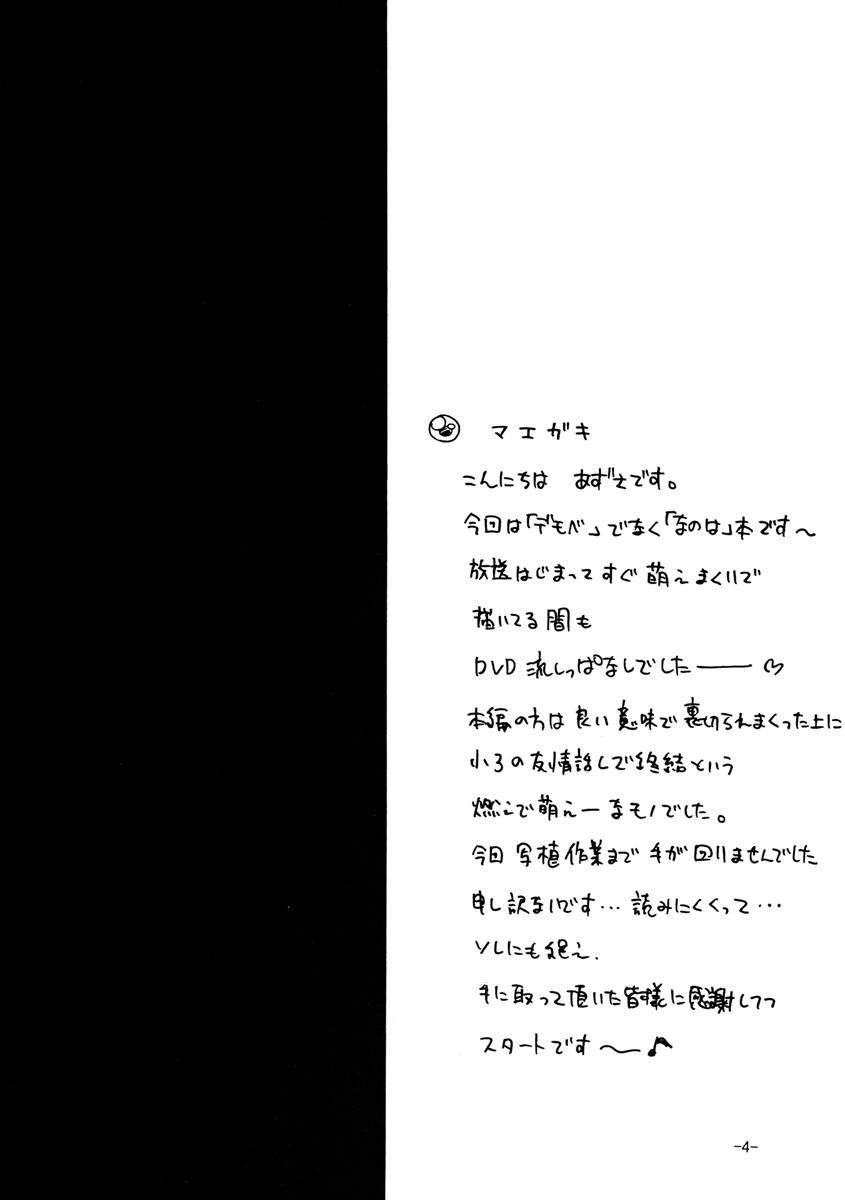 マエガキ
こんにちは あずまです。
今回は「デモベ」でなく「なのは」本です〜
放送はじまってすぐ萌えまくりで
描いてる間も
DVD 流しっぱなしでした——♡
本編の方は良い意味で裏切られまくった上に
小3の友情話しで終結という
燃えで萌えーなモノでした。
今回 写植作業まで手が回りませんでした
申し訳ないです… 読みにくくって…
ソレにも絶え、
手に取って頂いた皆様に感謝してつ
スタートです〜♪
-4-